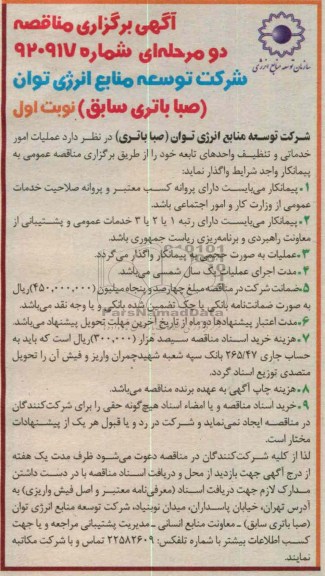 آگهی برگزاری مناقصه
دو مرحله‌ای شماره ۹۲۰۹۱۷
شرکت توسعه منابع انرژی توان
(صبا باتری سابق) نوبت اول
سازمان توسعه منابع انرژی
شرکت توسعه منابع انرژی توان (صبا باتری) در نظر دارد عملیات امور
خدماتی و تنظیف واحدهای تابعه خود را از طریق برگزاری مناقصه عمومی به
پیمانکار واجد شرایط واگذار نماید:
۱•پیمانکار می‌بایست دارای پروانه کسب معتبر و پروانه صلاحیت خدمات
عمومی از وزارت کار و امور اجتماعی باشد.
۲•پیمانکار می‌بایست دارای رتبه ۱ یا ۲ یا ۳ خدمات عمومی و پشتیبانی از
معاونت راهبردی و برنامه‌ریزی ریاست جمهوری باشد.
۳•عملیات به صورت حجمی به پیمانکار واگذار می‌گردد.
۴•مدت اجرای عملیات یک سال شمسی می‌باشد.
۵•ضمانت شرکت در مناقصه مبلغ چهارصد و پنجاه میلیون (۴۵۰,۰۰۰,۰۰۰)ریال
به صورت ضمانت‌نامه بانکی یا چک تضمین شده بانکی و یا وجه نقد می‌باشد.
۶•مدت اعتبار پیشنهادها دو ماه از تاریخ آخرین مهلت تحویل پیشنهاد می‌باشد.
۷•هزینه خرید اسناد مناقصه سیصد هزار (۳۰۰,۰۰۰)ریال است که باید به
حساب جاری ۲۶۵/۴۷ بانک سپه شعبه شهیدچمران واریز و فیش آن را تحویل
متصدی توزیع اسناد گردد.
۸•هزینه چاپ آگهی به عهده برنده مناقصه می‌باشد.
۹•خرید اسناد مناقصه و یا امضاء اسناد هیچ‌گونه حقی را برای شرکت‌کنندگان
در مناقصه ایجاد نمی‌نماید و شرکت در رد و یا قبول هر یک از پیشنهادات
مختار است.
لذا از کلیه شرکت‌کنندگان در مناقصه دعوت می‌شود ظرف مدت یک هفته
از درج آگهی جهت بازدید از محل و دریافت اسناد مناقصه با در دست داشتن
مدارک لازم جهت دریافت اسناد (معرفی‌نامه معتبر و اصل فیش واریزی) به
آدرس تهران، خیابان پاسداران، میدان نوبنیاد، شرکت توسعه منابع انرژی توان
(صبا باتری سابق) ـ معاونت منابع انسانی ـ مدیریت پشتیبانی مراجعه و یا جهت
کسب اطلاعات بیشتر با شماره تلفکس: ۲۲۵۸۲۶۰۹ تماس و با شرکت مکاتبه
نمایند.